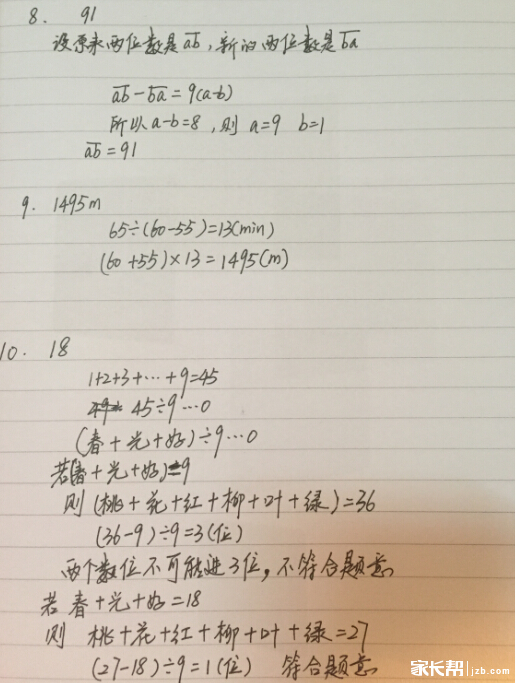 8. 91
设原来两位数是ab,新的两位数是ba
ab-ba=9(a-b)
所以a-b=8,则 a=9 b=1
ab=91
9. 1495m
65÷(60-55)=13(min)
(60+55)×13=1495(m)
10. 18
1+2+3+…+9=45
45÷9…0
(春+光+好)÷9…0
若(春+光+好)=9
则(桃+花+红+柳+叶+绿)=36
(36-9)÷9=3(位)
两个数位不可能进3位,不符合题意
若 春+光+好=18
则 桃+花+红+柳+叶+绿=27
(27-18)÷9=1(位) 符合题意
家长帮 jzb.com